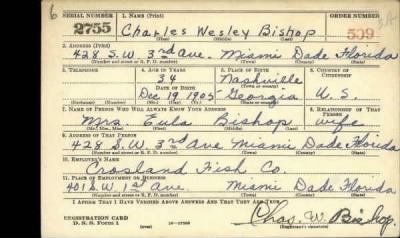 6
SERIAL NUMBER 1. NAME (Print) ORDER NUMBER
2755 Charles Wesley Bishop 509
(First) (Middle) (Last)
2. ADDRESS (Print)
428 S.W. 3rd Ave. Miami Dade Florida
(Number and street or R. F. D. number) (Town) (County) (State)
3. TELEPHONE 4. AGE IN YEARS 5. PLACE OF BIRTH 6. COUNTRY OF CITIZENSHIP
34 Nashville
DATE OF BIRTH (Town or county)
Dec 19 1905 Georgia U. S.
(Exchange) (Number) (Mo.) (Day) (Yr.) (State or country)
7. NAME OF PERSON WHO WILL ALWAYS KNOW YOUR ADDRESS 8. RELATIONSHIP OF THAT PERSON
Mrs. Eula Bishop wife
(Mr., Mrs., Miss) (First) (Middle) (Last)
9. ADDRESS OF THAT PERSON
428 S.W. 3rd Ave Miami Dade Florida
(Number and street or R. F. D. number) (Town) (County) (State)
10. EMPLOYER'S NAME
Crosland Fish Co.
11. PLACE OF EMPLOYMENT OR BUSINESS
401 S.W. 1st Ave. Miami Dade Florida
(Number and street or R. F. D. number) (Town) (County) (State)
I AFFIRM THAT I HAVE VERIFIED ABOVE ANSWERS AND THAT THEY ARE TRUE.
REGISTRATION CARD
D. S. S. Form 1 (over) Chas. W. Bishop